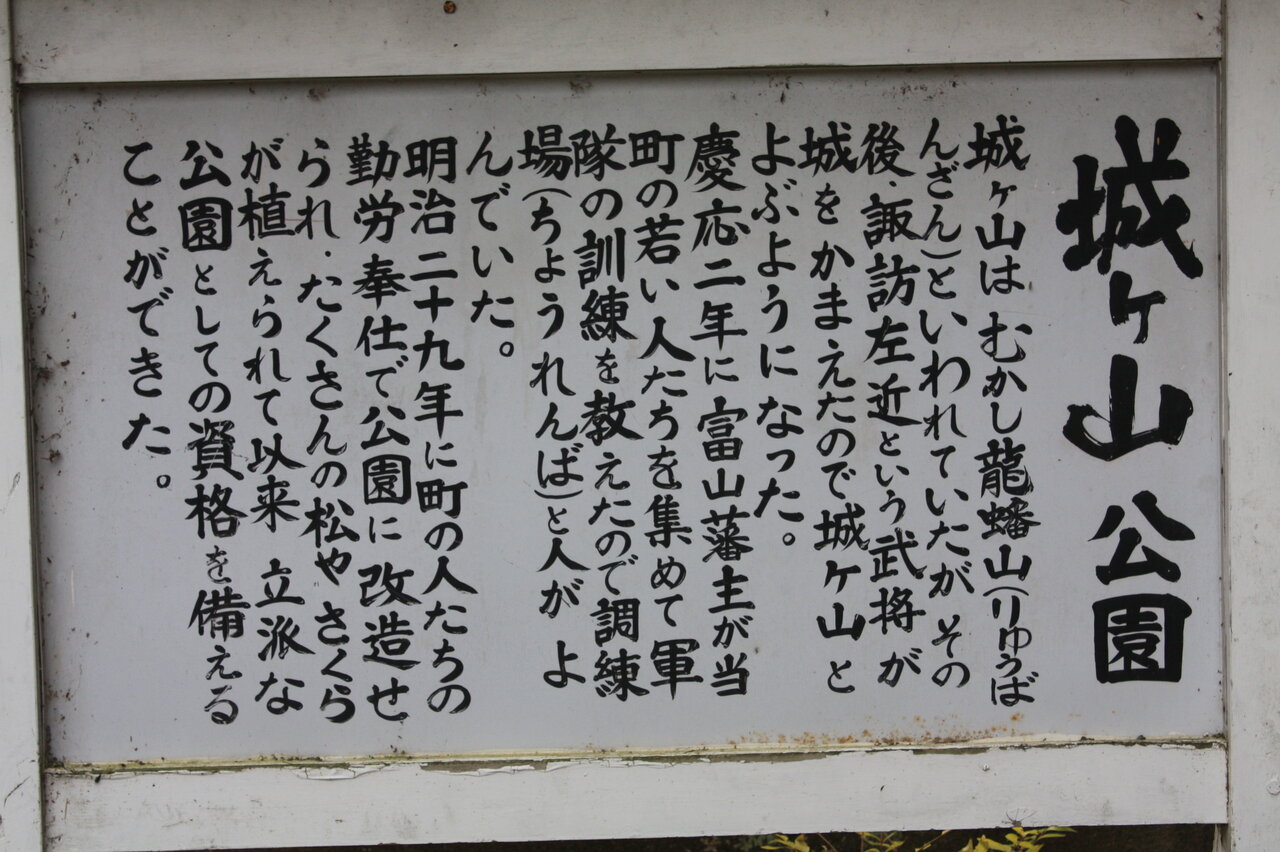 城ヶ山公園
城ヶ山は むかし龍蟠山(りゅうば
んざん)といわれていたが その
後、諏訪左近という武将が
城をかまえたので城ヶ山と
よぶようになった。
慶応二年に富山藩主が当
町の若い人たちを集めて軍
隊の訓練を教えたので調練
場(ちょうれんば)と人が よ
んでいた。
明治二十九年に町の人たちの
勤労奉仕で公園に 改造せ
られ、たくさんの松や さくら
が植えられて以来 立派な
公園としての資格を備える
ことができた。